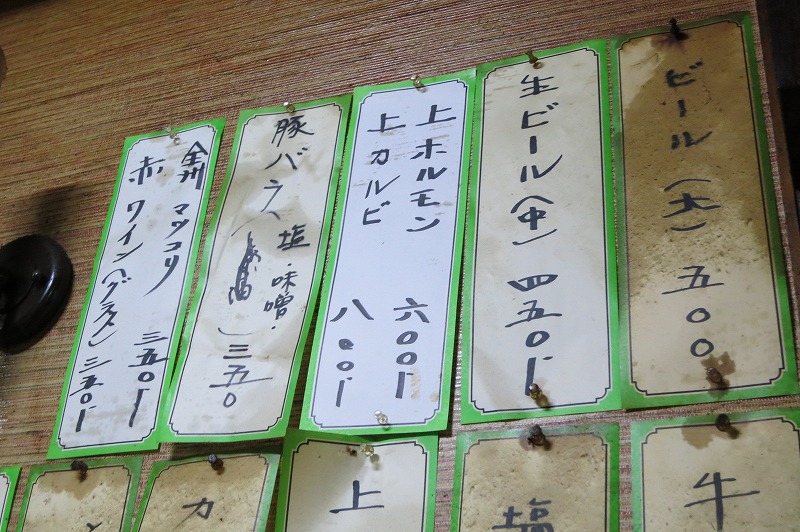 ビール(大) 五〇〇
生ビール(中) 四五〇
上ホルモン 六〇〇
上カルビ 八〇〇
豚バラ 塩・味噌・ 三五〇
マッコリ 三五〇
赤ワイン(グラス) 三五〇
牛
塩
上
カ